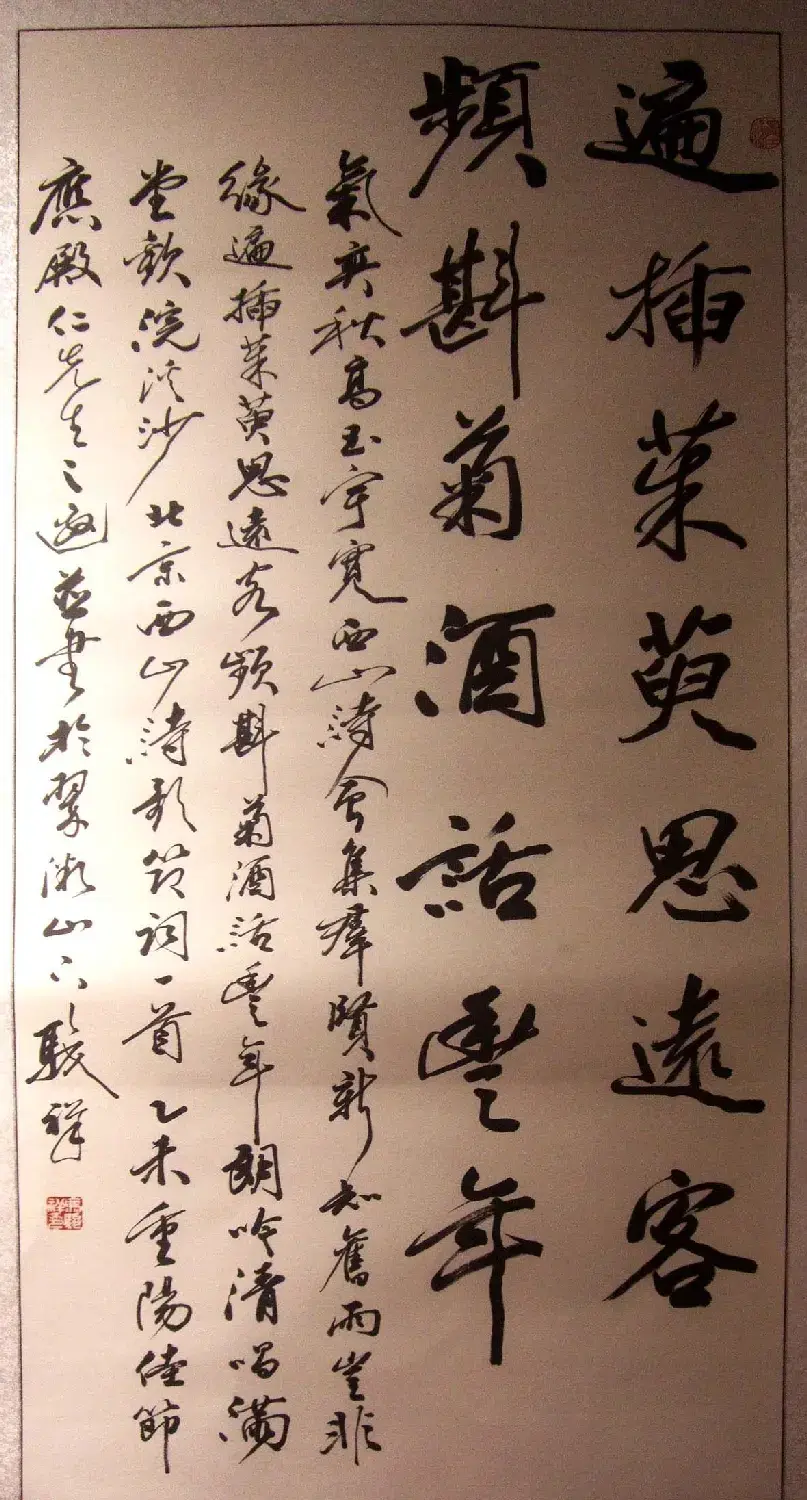 遍插茱萸思遠客
頻斟菊酒話豐年
氣爽秋高玉宇寬西山詩會集群賢新知舊雨豈非
緣遍插茱萸思遠客頻斟菊酒話豐年朗吟清唱滿
堂歡浣溪沙北京西山詩歌節詞一首乙未重陽佳節
應殿仁先生之邀並書於翠微山下駿祥